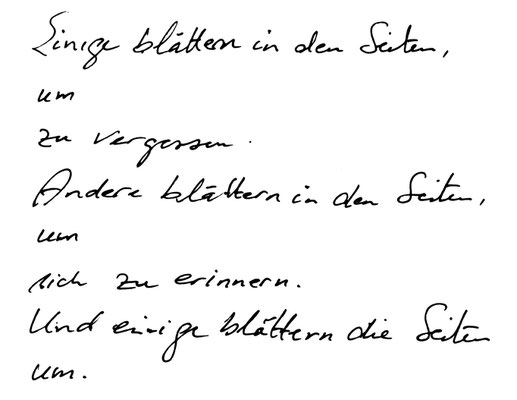 Einige blättern in den Seiten,
um
zu vergessen.
Andere blättern in den Seiten,
um
sich zu erinnern.
Und einige blättern die Seiten
um.